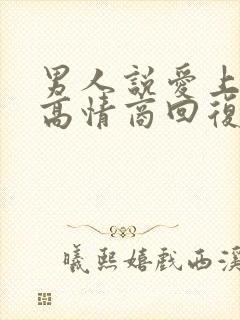 男人說愛上
高情商回復
曦熙嬉戲西溪